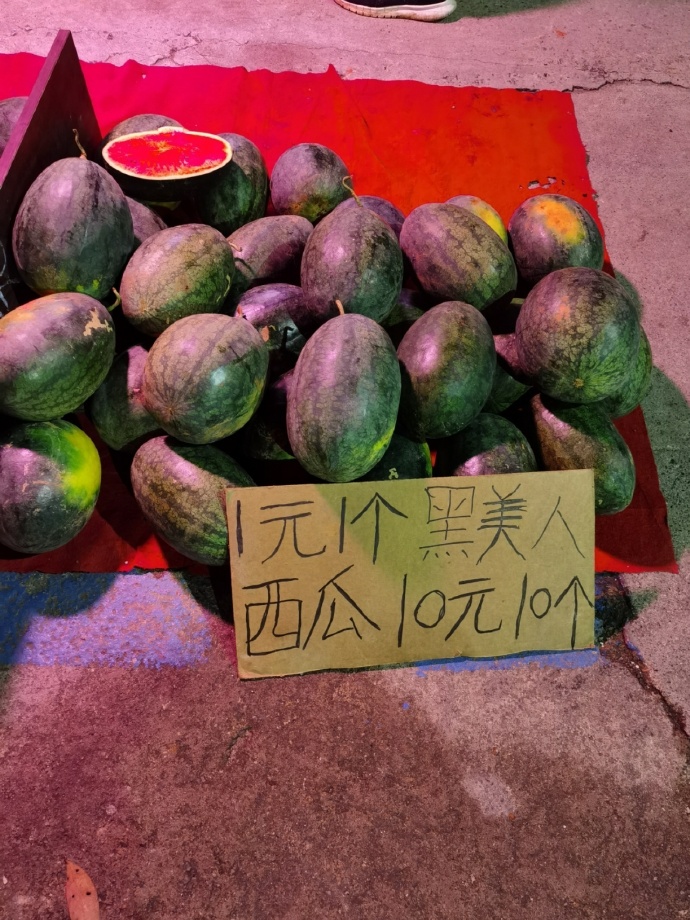 1元1个 黑美人
西瓜10元10个